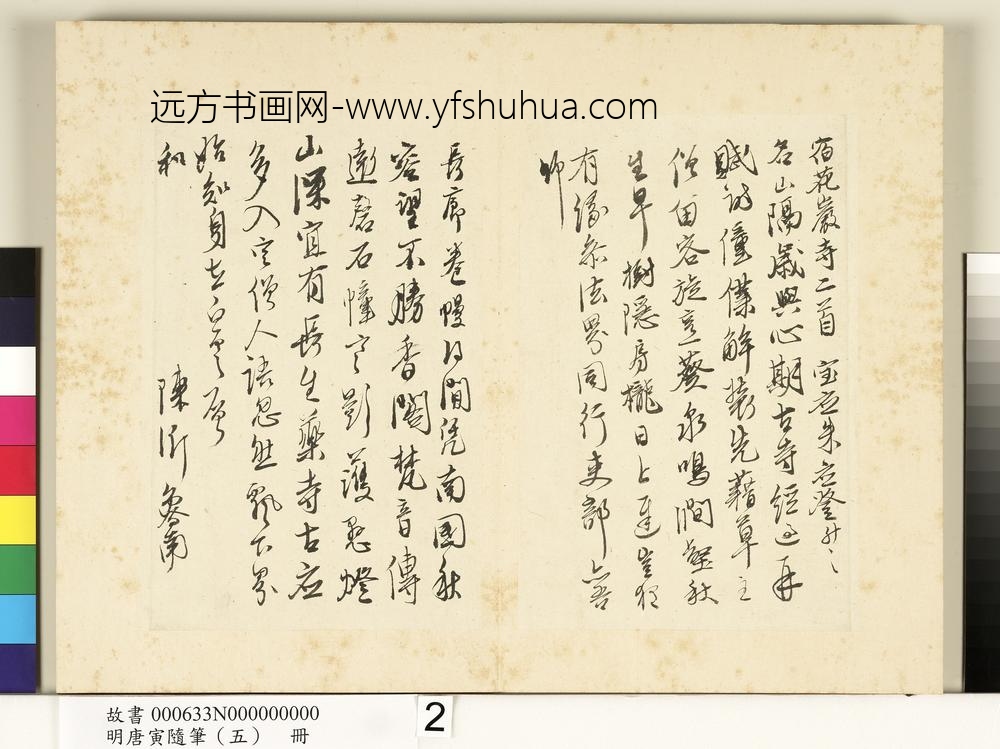 远方书画网-www.yfshuhua.com
宿花巖寺二首 宝应朱应登升之
名山隔歲與心期古寺經過再
賦詩僮僕解裝先藉草主
僧留客旋烹葵泉鳴澗壑秋
生早樹隱房櫳日上遲豈獨
有緣參法界同行吏部六吾
師
長廊卷幔日間凭南國秋
容望不勝香閣梵音傳
遠磬石幢寒影護懸燈
山深宜有長生藥寺古應
多入定僧人語忽然飄下界
始知身在白雲層
和 陳沂 魯南
故書 000633N000000000
明唐寅隨筆（五） 冊
2